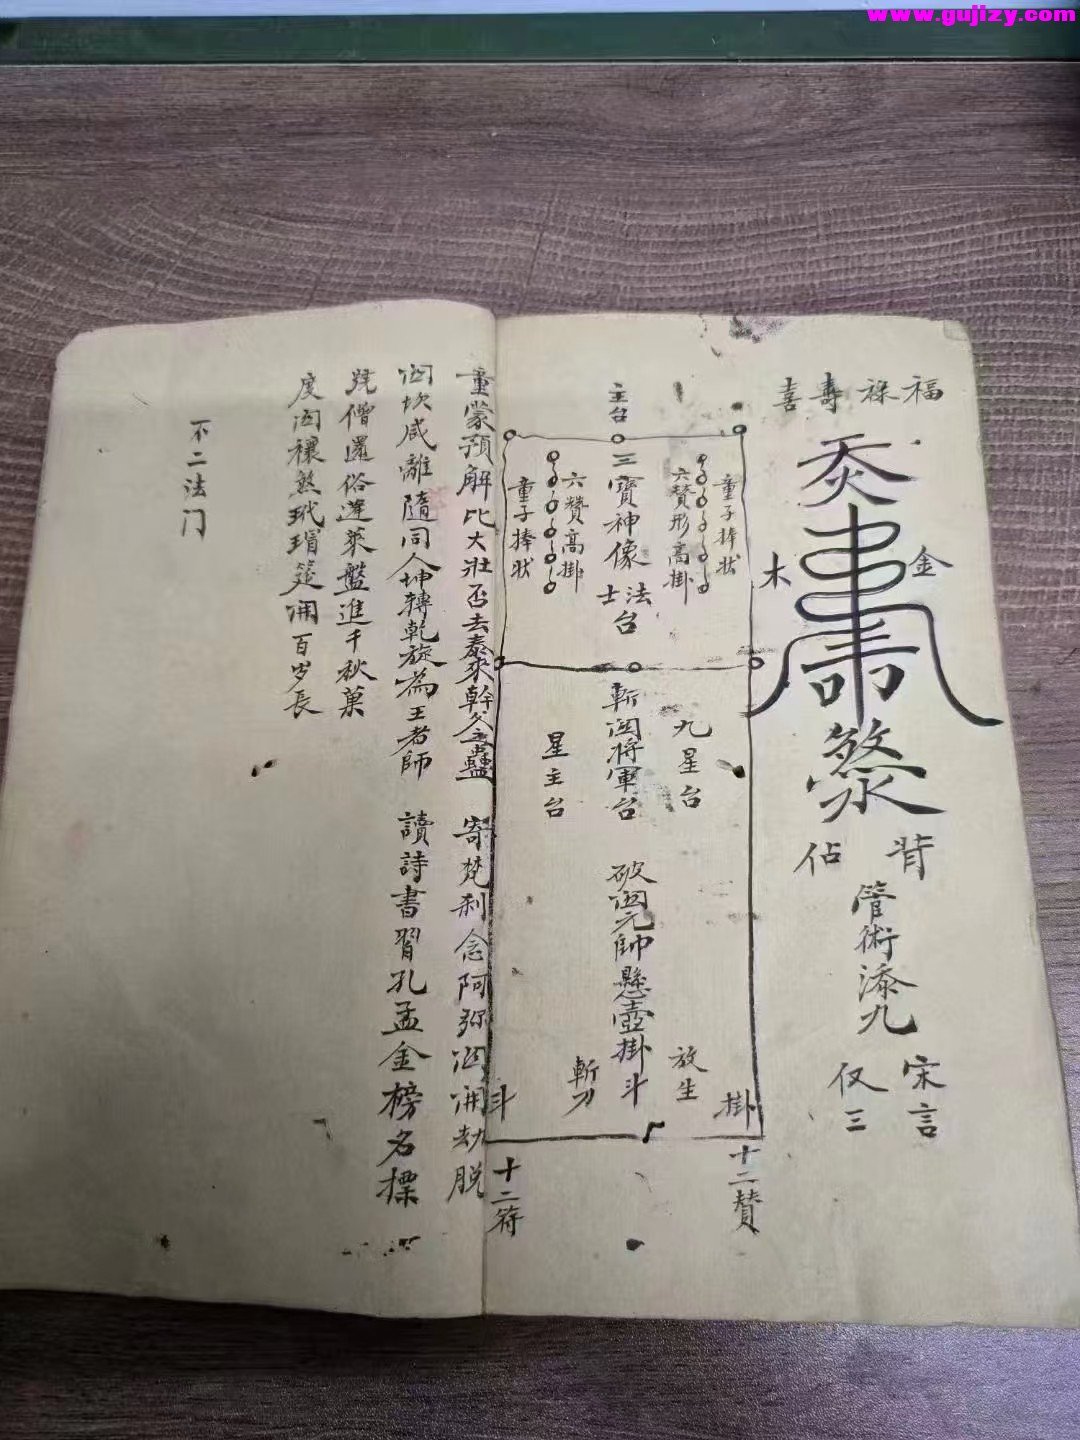 www.gujizy.com
福祿壽喜
金
木
背
佔
管術添九
宋言
仅三
童子捧状
六賛形高掛
主台
三寳神像
法士台
六賛高掛
童子捧状
九星台
斬関將軍台
星主台
破関元帥懸壺掛斗
放生
斬刀
掛
斗
十二賛
十二符
童蒙預解比大壯否去泰來幹父之蠱 寄梵刹念阿弥関開劫脱
関坎咸離隨同人坤轉乾旋為王者師 讀詩書習孔孟金榜名標
僧還俗蓬萊盤進千秋菓
度関禳煞玳瑁筵開百岁長
不二法门